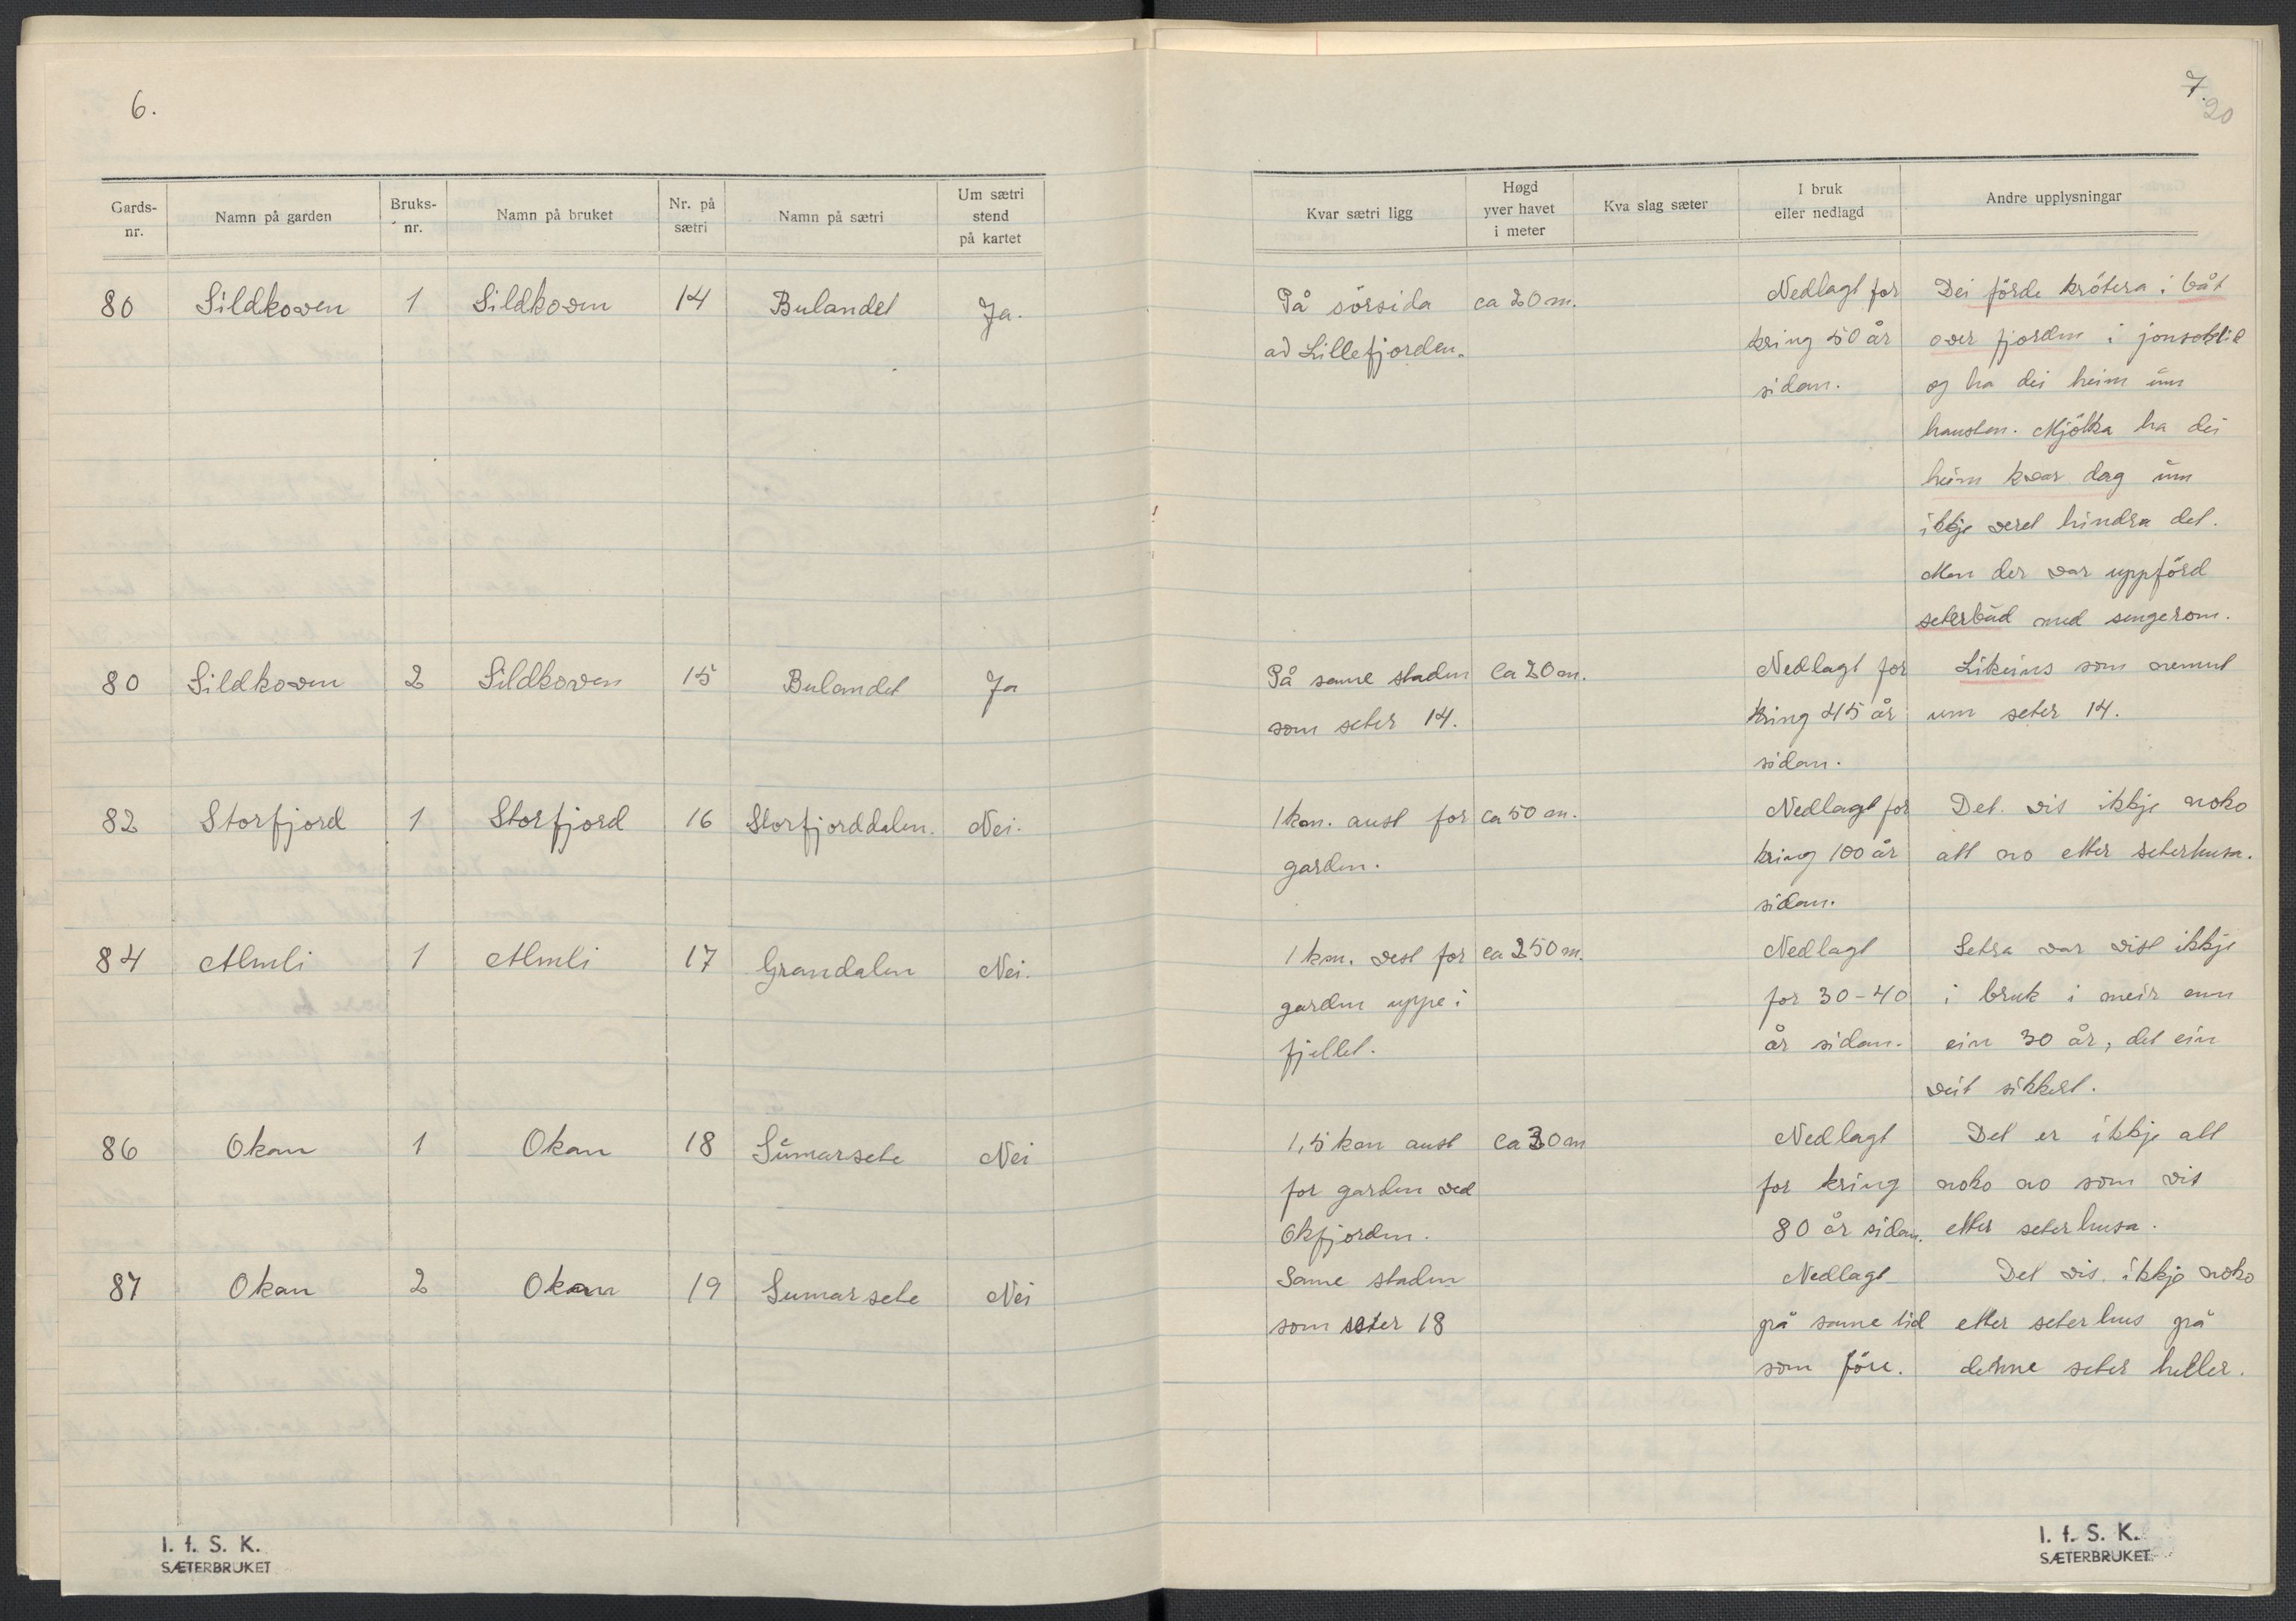 6.
Gards-
nr.
Namn på garden
Bruks-
nr.
Namn på bruket
Nr. på
sætri
Namn på sætri
Um sætri
stend
på kartet
80 Sildkoven 1 Sildkoven 14 Bulandet Ja.
80 Sildkoven 2 Sildkoven 15 Bulandet Ja
82 Storfjord 1 Storfjord 16 Storfjorddalen. Nei.
84 Almli 1 Almli 17 Grandalen Nei.
86 Okan 1 Okan 18 Sumarsete Nei
87 Okan 2 Okan 19 Sumarsete Nei
I. f. S. K.
SÆTERBRUKET
7.
20
Kvar sætri ligg
Høgd
yver havet
i meter
Kva slag sæter
I bruk
eller nedlagd
Andre upplysningar
På sörsida ca 20 m. Nedlagt for Dei förde krötera i båt
av Lillefjorden. kring 50 år over fjorden i jonsoktid
sidan. og ha dei heim um
hausten. Mjölka ha dei
heim kvar dag um
ikkje veret hindra det.
Men der var uppförd
seterbud med sengerom.
På same staden ca 20 m. Nedlagt for Likeins som nemnt
som seter 14. kring 45 år um seter 14.
sidan.
1 km. aust for ca 50 m. Nedlagt for Det vis ikkje noko
garden. kring 100 år att no etter seterhusa.
sidan.
1 km. vest for ca 250 m. Nedlagt Setra var vist ikkje
garden uppe i for 30-40 i bruk i meir enn
fjellet. år sidan. ein 30 år, det ein
veit sikkert.
1,5 km aust ca 30 m Nedlagt Det er ikkje att
for garden ved for kring noko no som vis
Okfjorden. 80 år sidan. etter seterhusa.
Same staden Nedlagt Det vis ikkje noko
som seter 18 på same tid etter seterhus på
som före. denne seter heller.
I. f. S. K.
SÆTERBRUKET